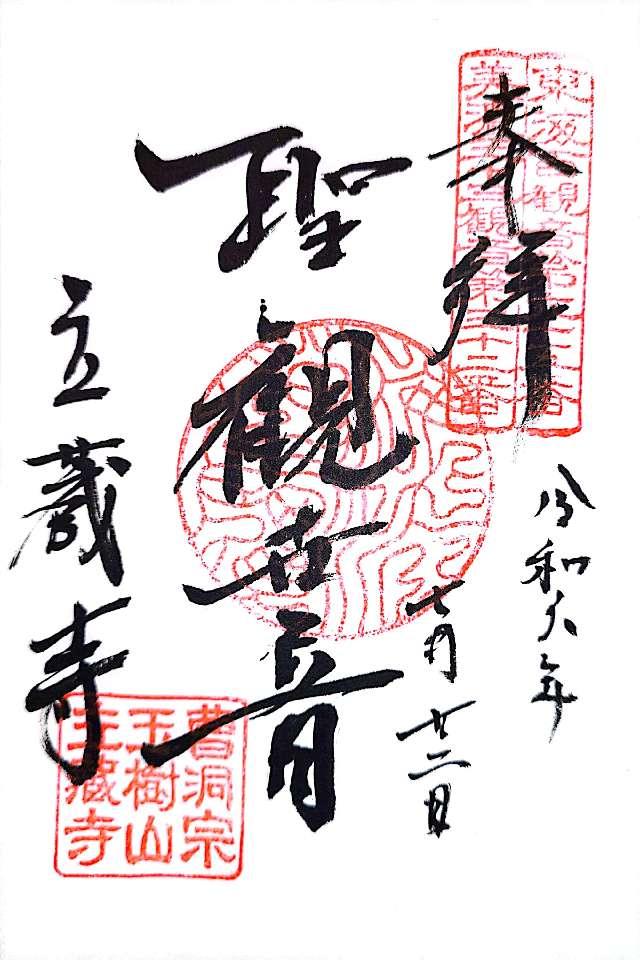 奉拝
令和六年
七月廿二日
聖観世音
立蔵寺
曹洞宗
玉樹山
立蔵寺